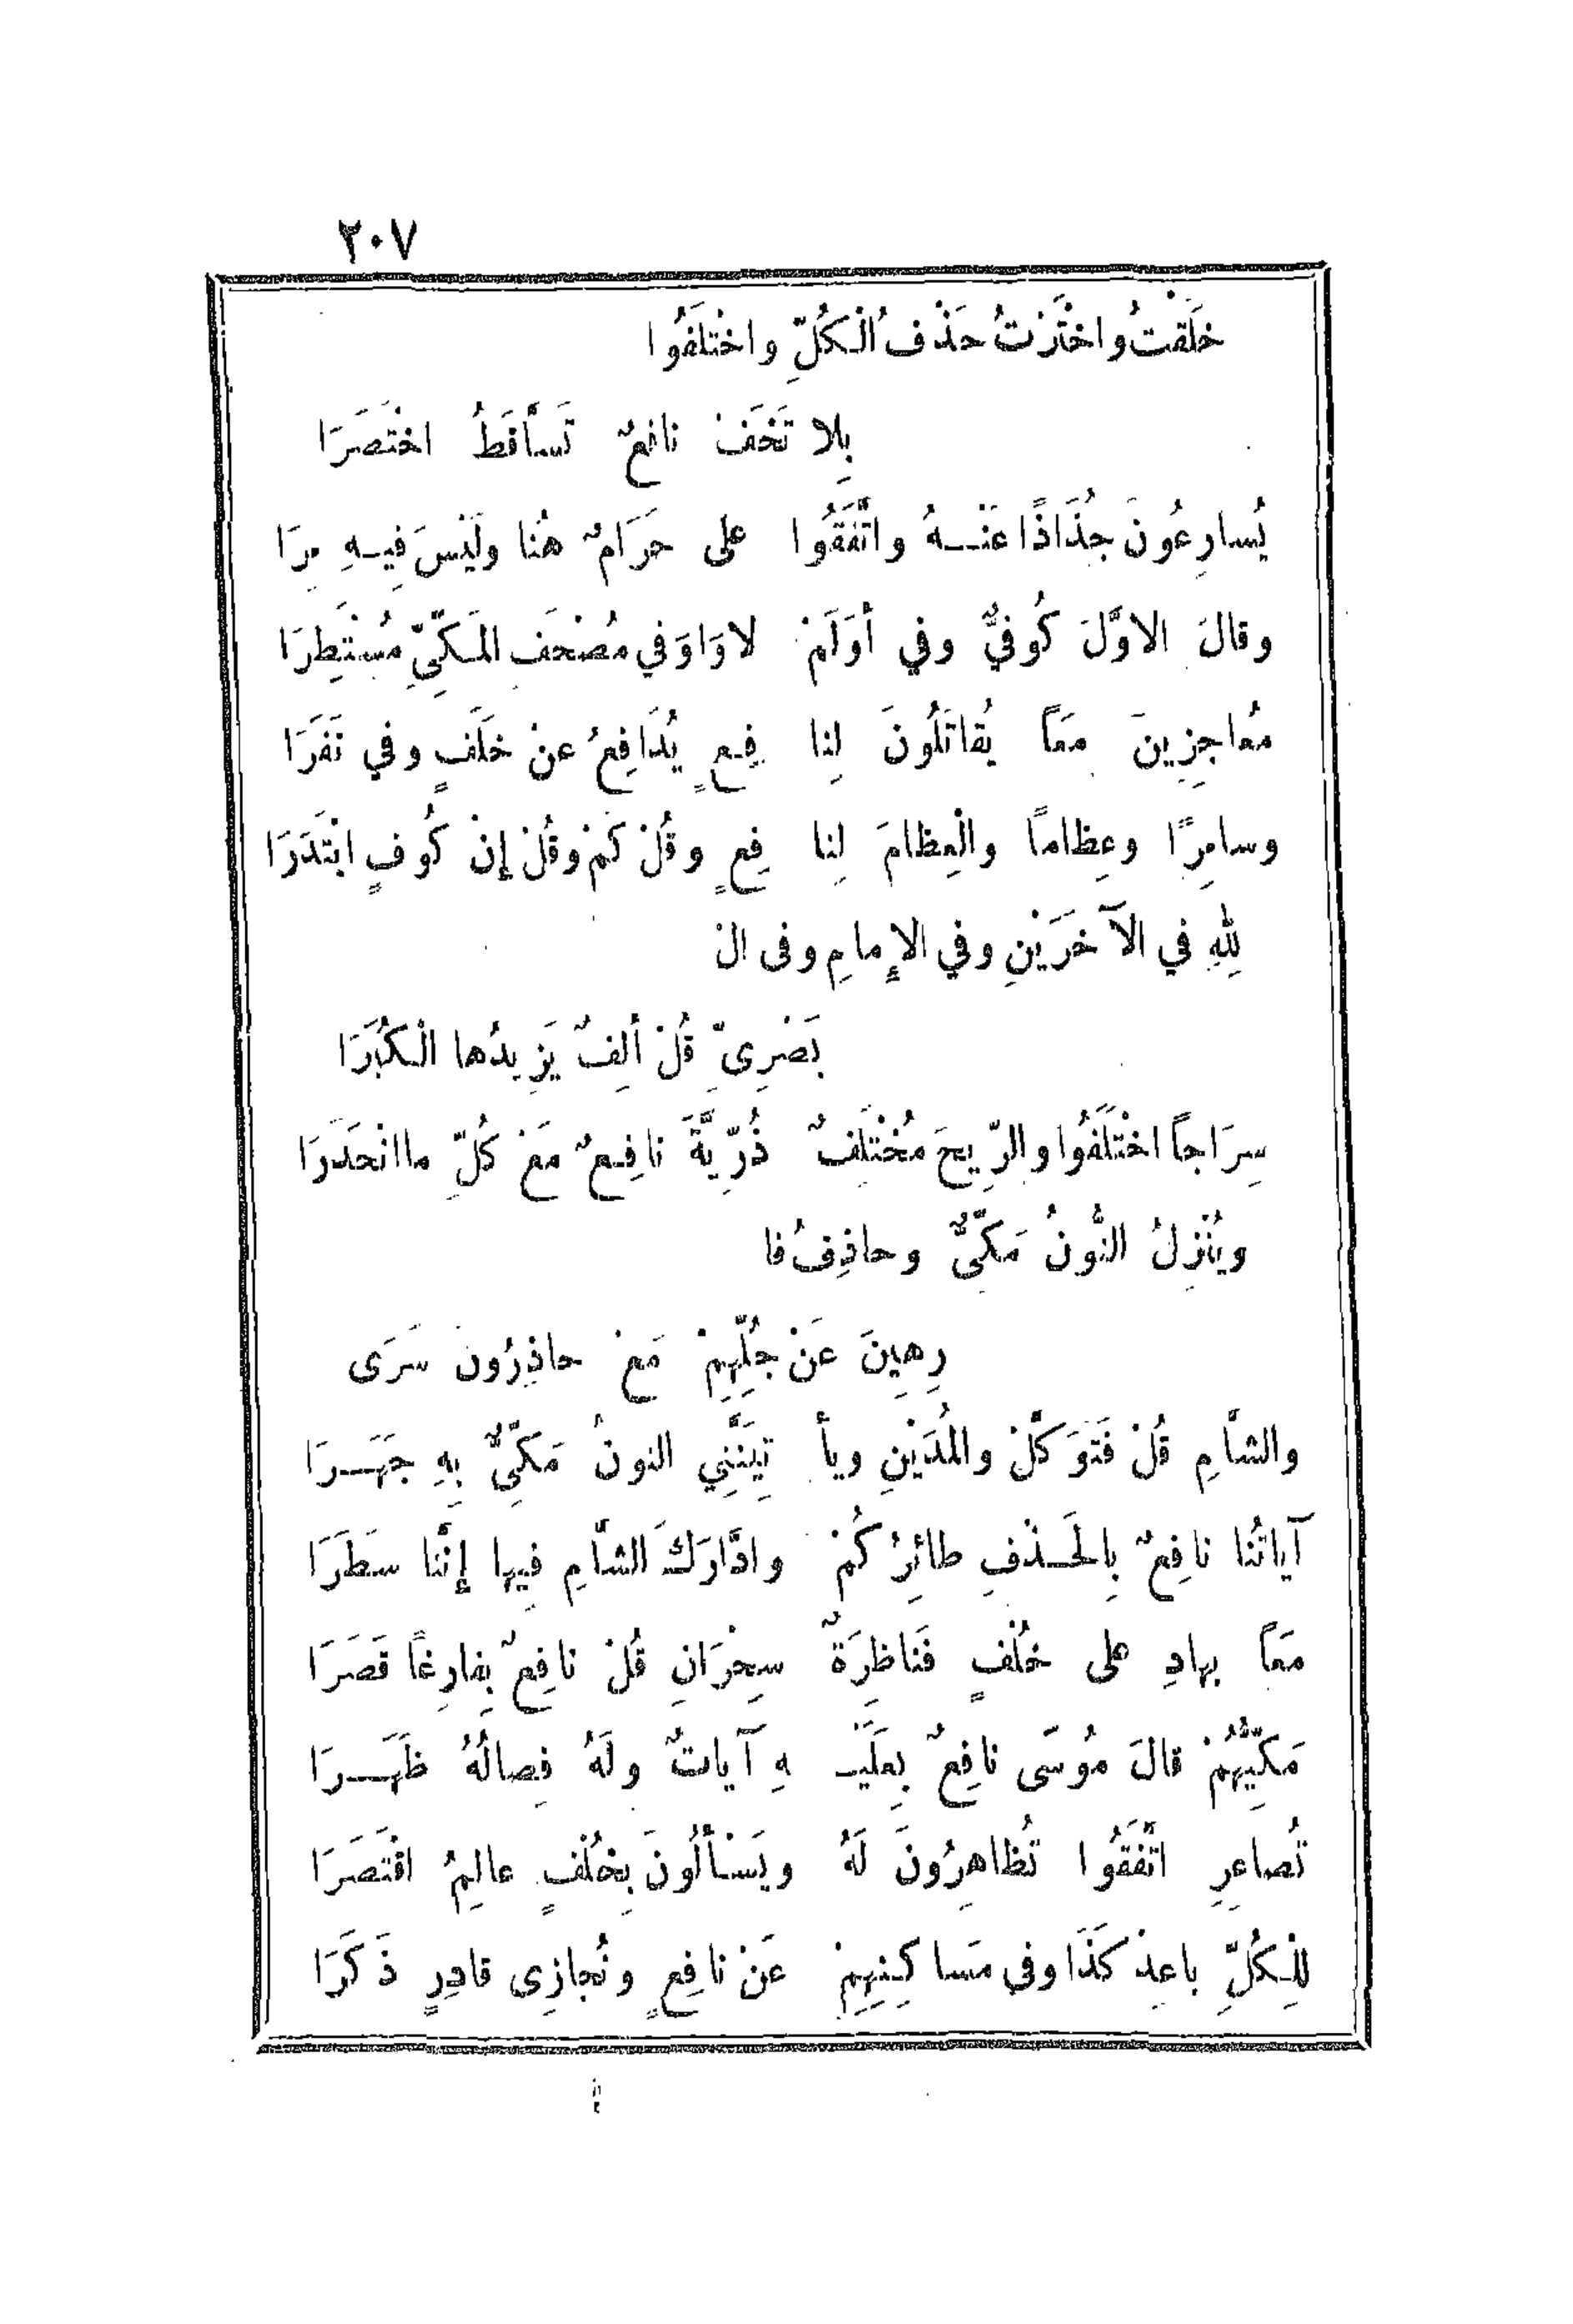 ٢٠٧
خَلَقْتُ وَاخْتَرْتُ حَذْفُ الْكُلِّ واخْتَلَفُوا
بِلا تَخَفْ نافِعٌ تَسَّاقَطُ اخْتَصَرَا
يُسارِعُونَ جُذَاذًا عَنْـهُ واتَّفَقُوا على حَرَامٌ هُنا ولَيْسَ فِيـهِ مِرَا
وقالَ الاوَّلَ كُوفيٌّ وفي أوَلَمْ لا وَاوَ في مُصْحَفِ المَكِّيِّ مُسْتَطِرَا
مُعاجِزِينَ مَعًا يُقاتَلُونَ لِنا فِـعٍ يُدَافِعُ عنْ خَلَفٍ وفي نَفَرَا
وسامِرًا وعِظاماً والْعِظامَ لِنا فِعٍ وقُلْ كَمْ وقُلْ إنْ كُوفٍ ابْتَدَرَا
لِلهِ في الآخَرَيْنِ وفي الإِمامِ وفى الْ
بَصْرِىِّ قُلْ ألِفٌ يَزِيدُها الْكُبَرَا
سِرَاجاً اخْتَلَفُوا والرِّيحَ مُخْتَلِفٌ ذُرِّيَّةً نافِـعٌ مَعْ كُلِّ ما انْحَدَرَا
ويُنْزِلُ النُّونُ مَكِّىٌّ وحاذِفُ فا
رِهِينَ عَنْ جُلِّهِمْ مَعْ حاذِرُونَ سَرَى
والشَّامِ قُلْ فَتَوَكَّلْ والمُدَيْنِ ويأ تِيَنَّنِي النونُ مَكِّىٌّ بِهِ جَهَـرَا
آياتُنا نافِعٌ بِالْحَـذْفِ طائِرُكُمْ وادَّارَكَ الشَّامِ فِيها إنَّنا سَطَرَا
مَعًا بِهادِ على خُلْفٍ فَناظِرَةٌ سِحْرَانِ قُلْ نافِعٌ بِفارِغًا قَصَرَا
مَكِّيُّهُمْ قالَ مُوسَى نافِعٌ بِعَلَيْـ ـهِ آياتٌ ولَهُ فِصالُهُ ظَهَـرَا
تُصاعِرِ اتَّفَقُوا تُظاهِرُونَ لَهُ ويَسْألُونَ بِخُلْفٍ عالِمُ اقْتَصَرَا
لِلْكُلِّ باعِدْ كَذَا وفى مَساكِنِهِمْ عَنْ نافِعٍ ونُجازِى قادِرٍ ذَكَرَا